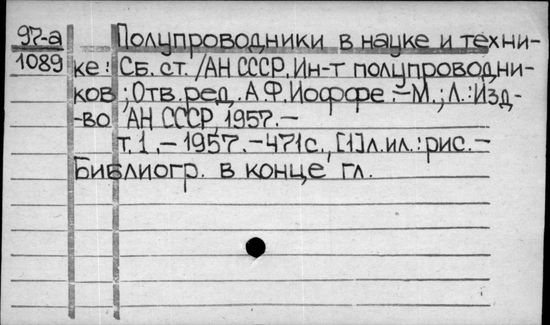 97-а Полупроводники в науке и техни-
1089 ке: Сб. ст. /АН СССР, Ин-т полупроводни-
ков; Отв. ред. А.Ф. Иоффе. – М.; Л.: Изд-
-во АН СССР, 1957. –
т. 1. – 1957. – 471 с., [1] л. ил.: рис. –
Библиогр. в конце гл.